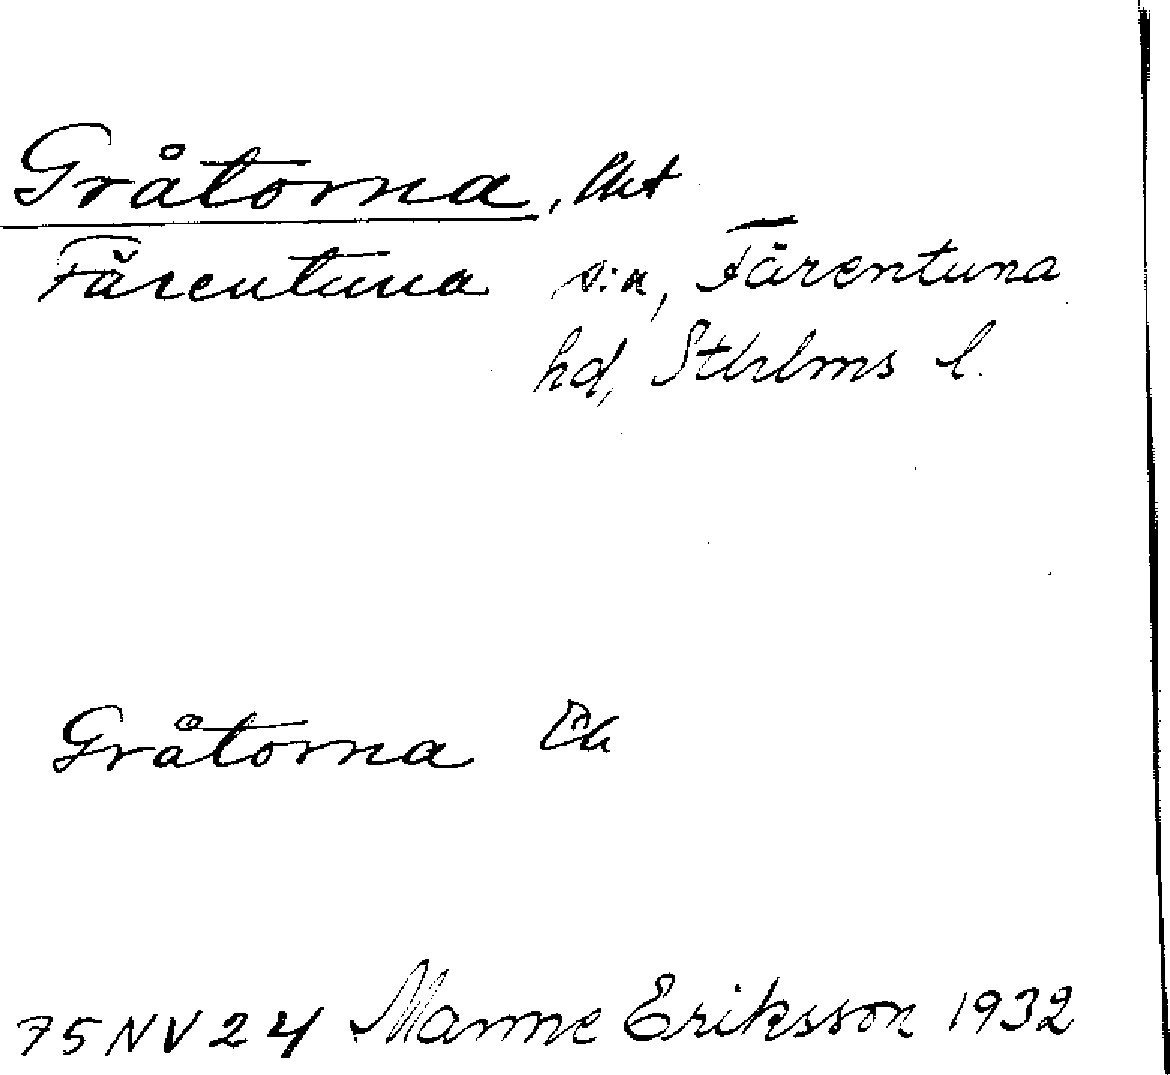 Gråtorna,
Färentuna sn, Färentuna
hd, Sthlms l.
Gråtorna Ek
75 NV 24 Manne Eriksson 1932